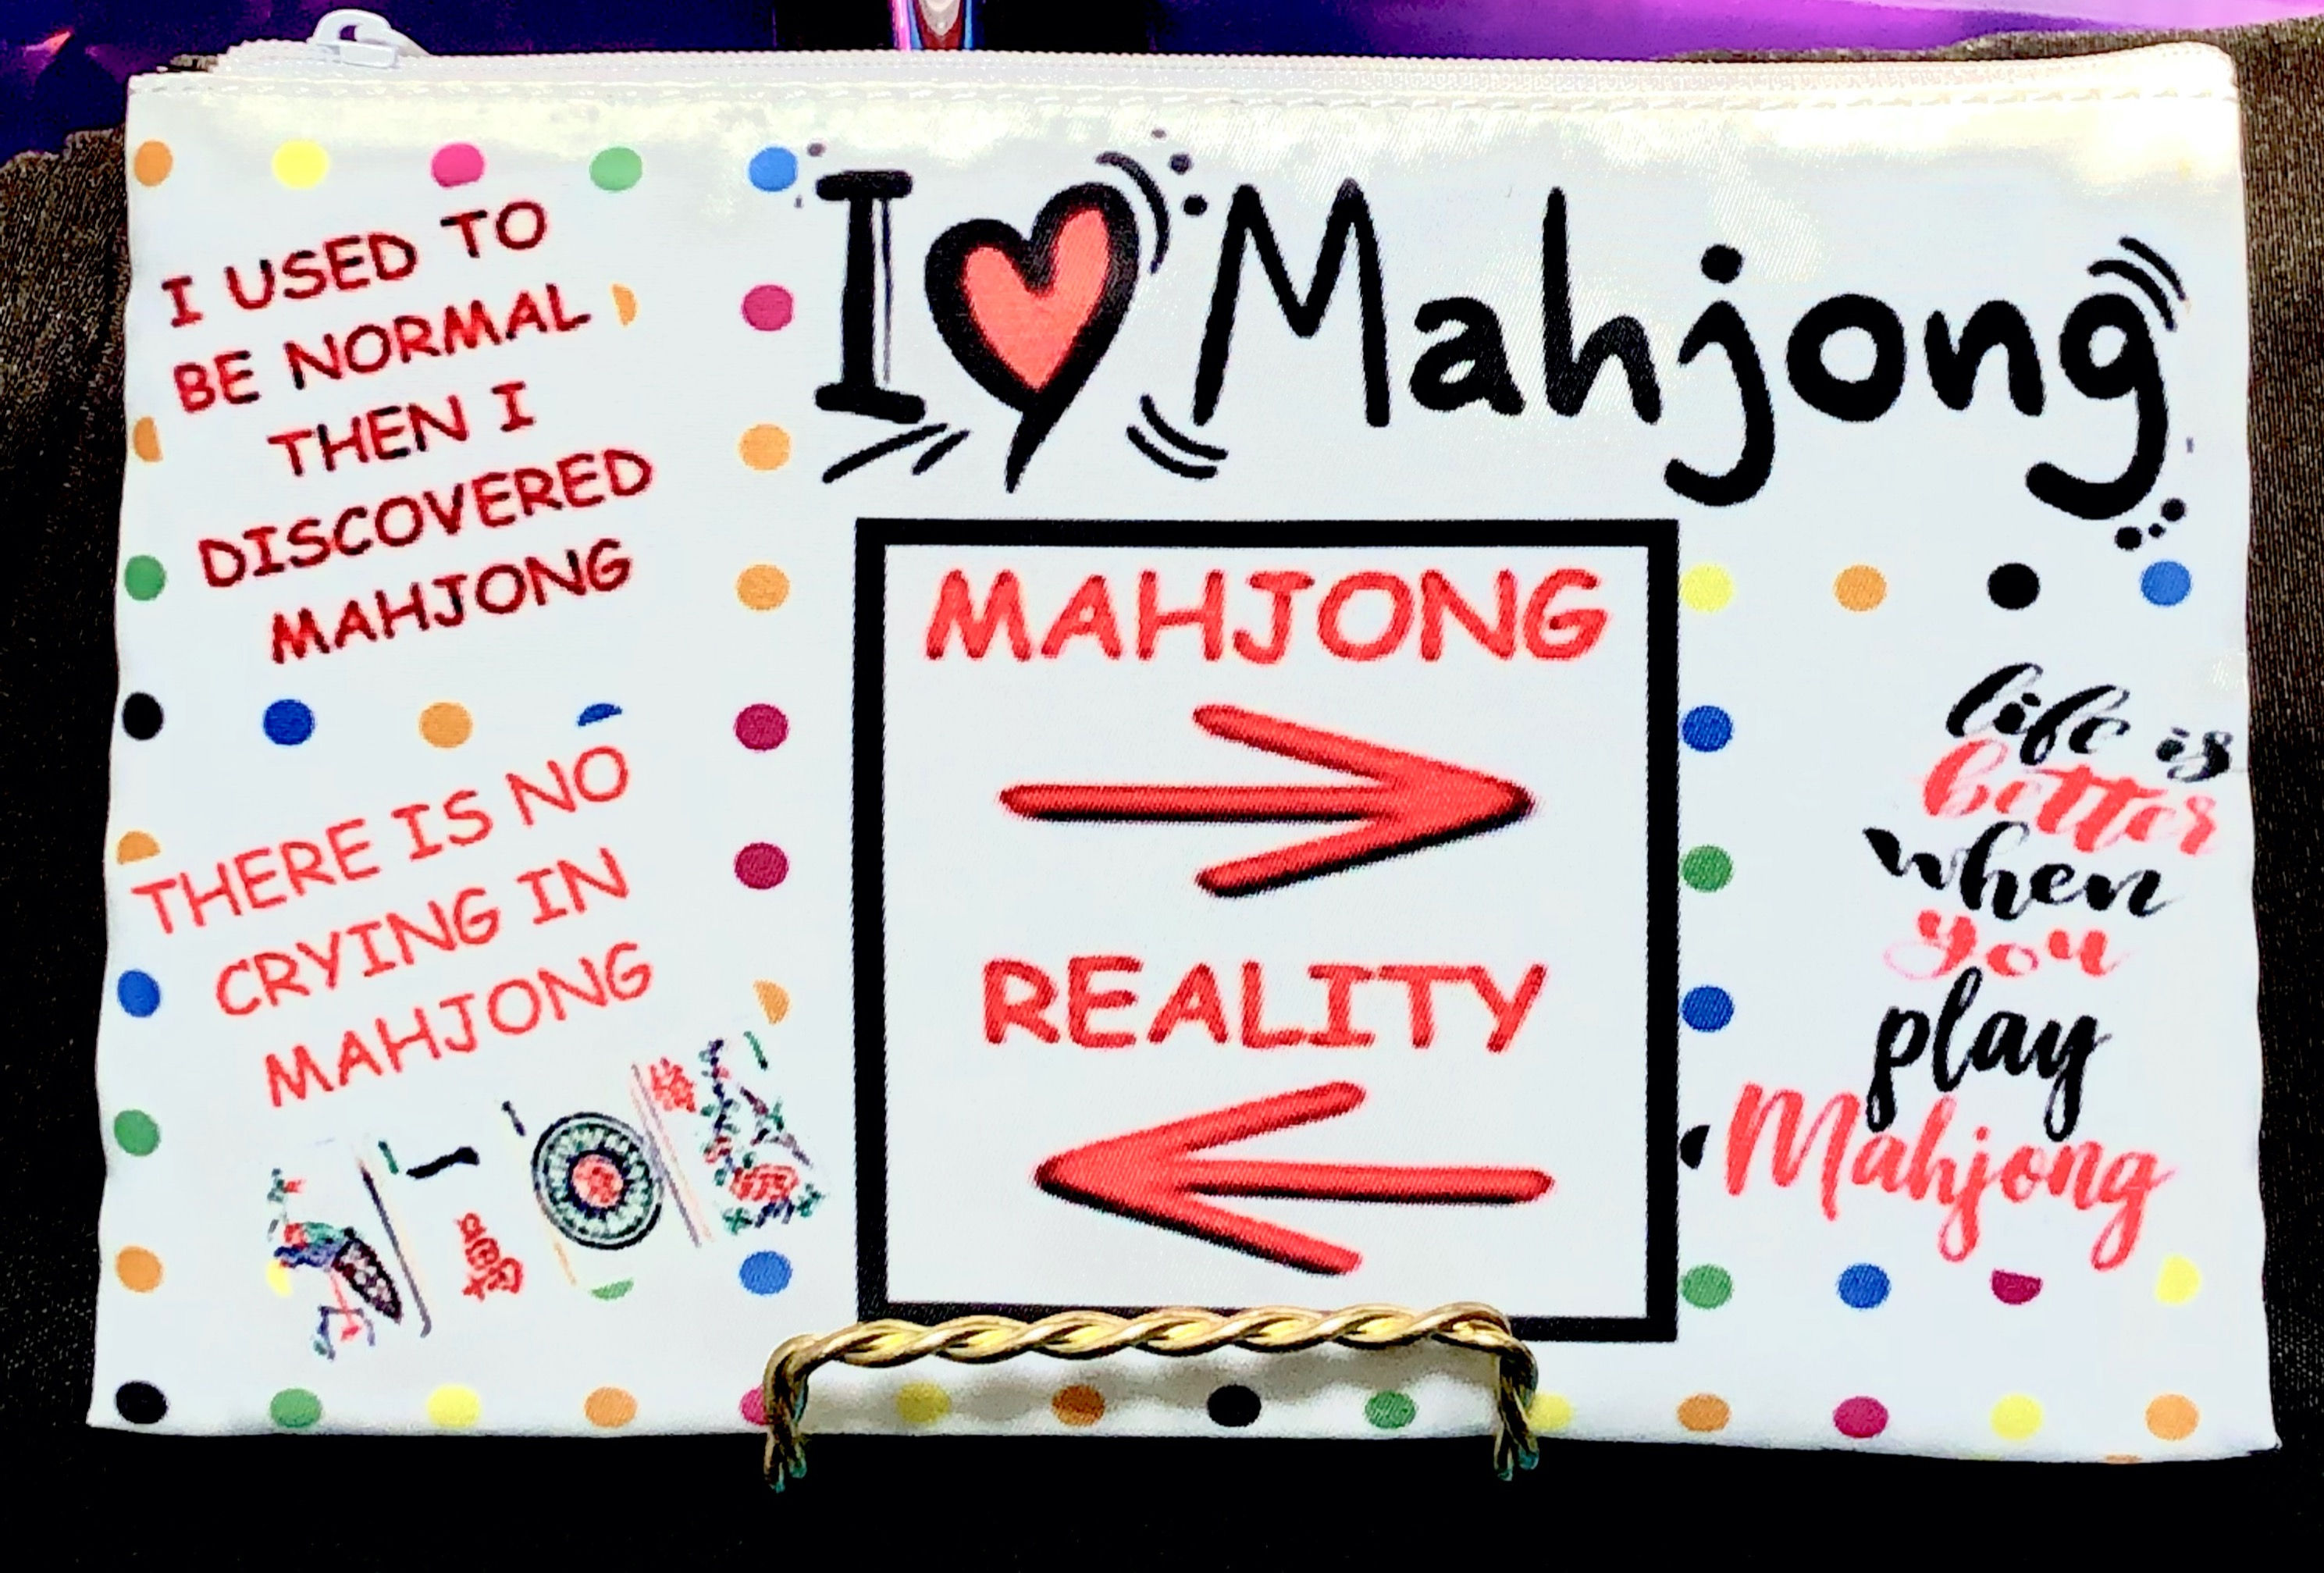 I USED TO
BE NORMAL
THEN I
DISCOVERED
MAHJONG
THERE IS NO
CRYING IN
MAHJONG
一
萬
I Mahjong
MAHJONG
REALITY
life is
better
when
you
play
Mahjong